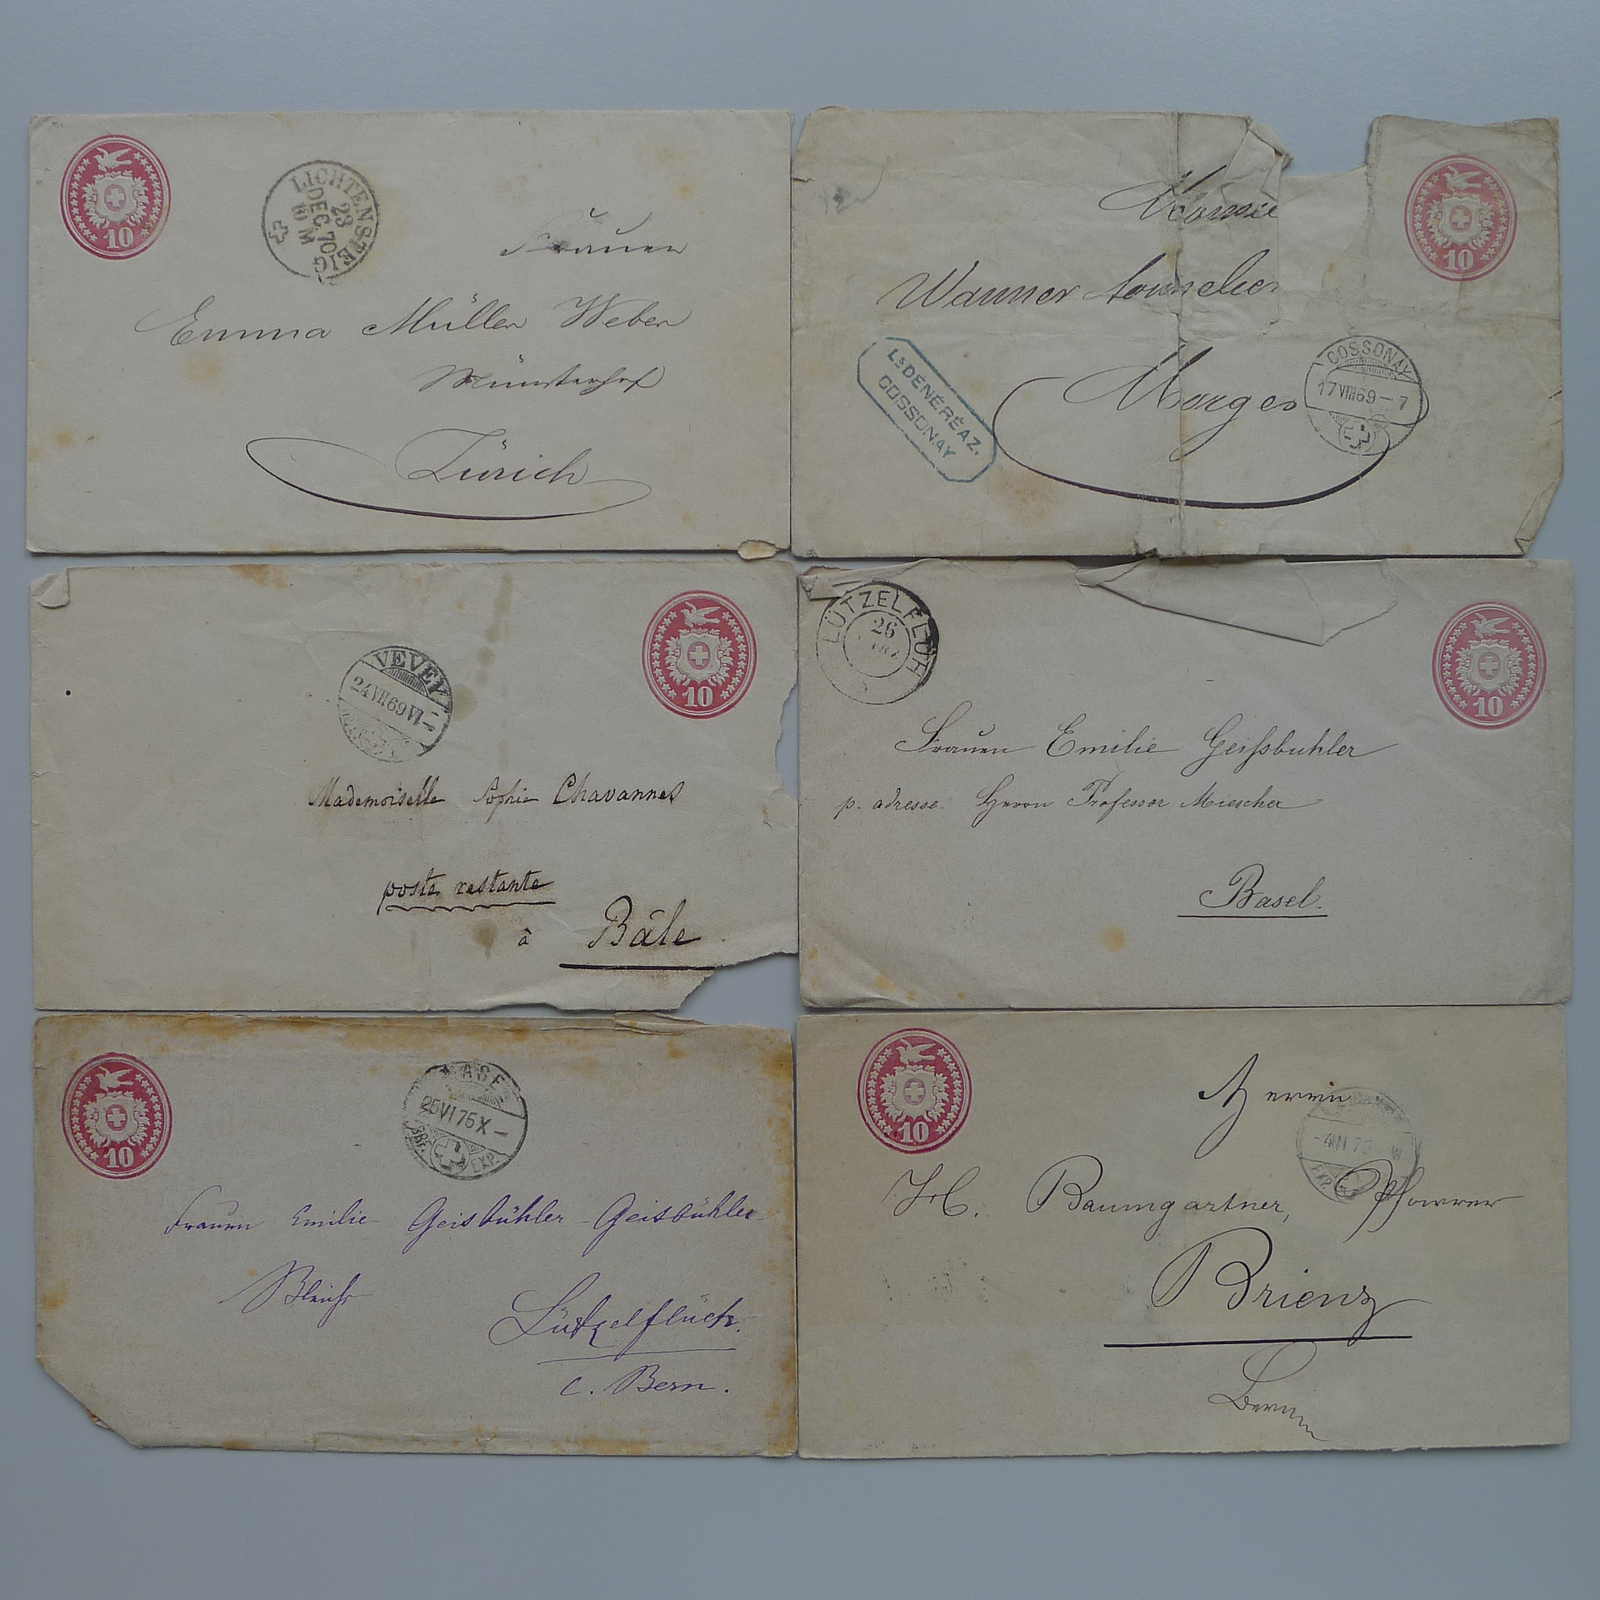 10
LICHTENSTEIG
23
DEC. 70
10 M
Frauen
Emma Müller Weber
Münsterhof
Zürich
10
Wanner tonnelier
Morges
Ls DENÉRÉAZ.
COSSONAY
COSSONAY
17 VIII 69 - 7
10
VEVEY
24 VII 69 VI -
Mademoiselle Sophie Chavannes
poste restante
à Bâle
10
LÜTZELFLÜH
26
Frauen Emilie Geißbuhler
p. adresse. Herrn Professor Miescher
Basel.
10
25 VI 75 X -
EXP.
Frauen Emilie Geisbühler-Geisbühler
Bleiche
Lützelflüh.
c. Bern.
10
Herrn
Baumgartner, Pfarrer
Brienz
Bern